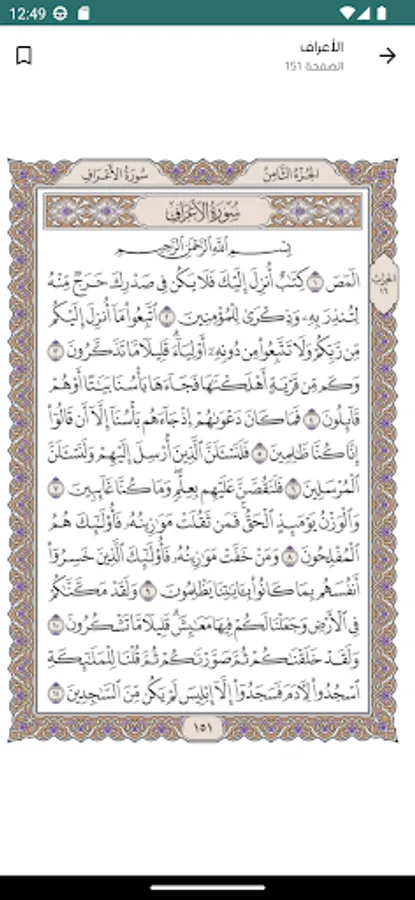 12:49
الأعراف
الصفحة 151
سُورَةُ الأَعْرَافِ
الجُزْءُ الثَّامِنُ
سُورَةُ الأَعْرَافِ
بِسْمِ ٱللَّهِ ٱلرَّحْمَٰنِ ٱلرَّحِيمِ
الحزب
١٦
الٓمٓصٓ ١ كِتَٰبٌ أُنزِلَ إِلَيْكَ فَلَا يَكُن فِي صَدْرِكَ حَرَجٌ مِّنْهُ
لِتُنذِرَ بِهِۦ وَذِكْرَىٰ لِلْمُؤْمِنِينَ ٢ ٱتَّبِعُوا۟ مَآ أُنزِلَ إِلَيْكُم
مِّن رَّبِّكُمْ وَلَا تَتَّبِعُوا۟ مِن دُونِهِۦٓ أَوْلِيَآءَ ۗ قَلِيلًا مَّا تَذَكَّرُونَ ٣
وَكَم مِّن قَرْيَةٍ أَهْلَكْنَٰهَا فَجَآءَهَا بَأْسُنَا بَيَٰتًا أَوْ هُمْ
قَآئِلُونَ ٤ فَمَا كَانَ دَعْوَىٰهُمْ إِذْ جَآءَهُم بَأْسُنَآ إِلَّآ أَن قَالُوٓا۟
إِنَّا كُنَّا ظَٰلِمِينَ ٥ فَلَنَسْـَٔلَنَّ ٱلَّذِينَ أُرْسِلَ إِلَيْهِمْ وَلَنَسْـَٔلَنَّ
ٱلْمُرْسَلِينَ ٦ فَلَنَقُصَّنَّ عَلَيْهِم بِعِلْمٍ ۖ وَمَا كُنَّا غَآئِبِينَ ٧
وَٱلْوَزْنُ يَوْمَئِذٍ ٱلْحَقُّ ۚ فَمَن ثَقُلَتْ مَوَٰزِينُهُۥ فَأُو۟لَٰٓئِكَ هُمُ
ٱلْمُفْلِحُونَ ٨ وَمَنْ خَفَّتْ مَوَٰزِينُهُۥ فَأُو۟لَٰٓئِكَ ٱلَّذِينَ خَسِرُوٓا۟
أَنفُسَهُم بِمَا كَانُوا۟ بِـَٔايَٰتِنَا يَظْلِمُونَ ٩ وَلَقَدْ مَكَّنَّٰكُمْ
فِي ٱلْأَرْضِ وَجَعَلْنَا لَكُمْ فِيهَا مَعَٰيِشَ ۗ قَلِيلًا مَّا تَشْكُرُونَ ١٠
وَلَقَدْ خَلَقْنَٰكُمْ ثُمَّ صَوَّرْنَٰكُمْ ثُمَّ قُلْنَا لِلْمَلَٰٓئِكَةِ
ٱسْجُدُوا۟ لِـَٔادَمَ فَسَجَدُوٓا۟ إِلَّآ إِبْلِيسَ لَمْ يَكُن مِّنَ ٱلسَّٰجِدِينَ ١١
١٥١